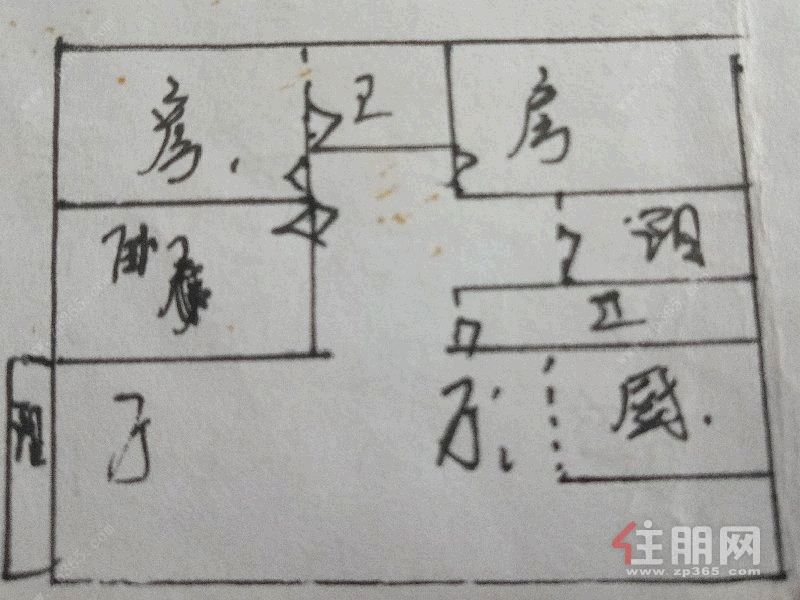 房.
卫
房
卧房
阳
卫
阳
厅
厅
厨.
住朋网
www.zp365.com